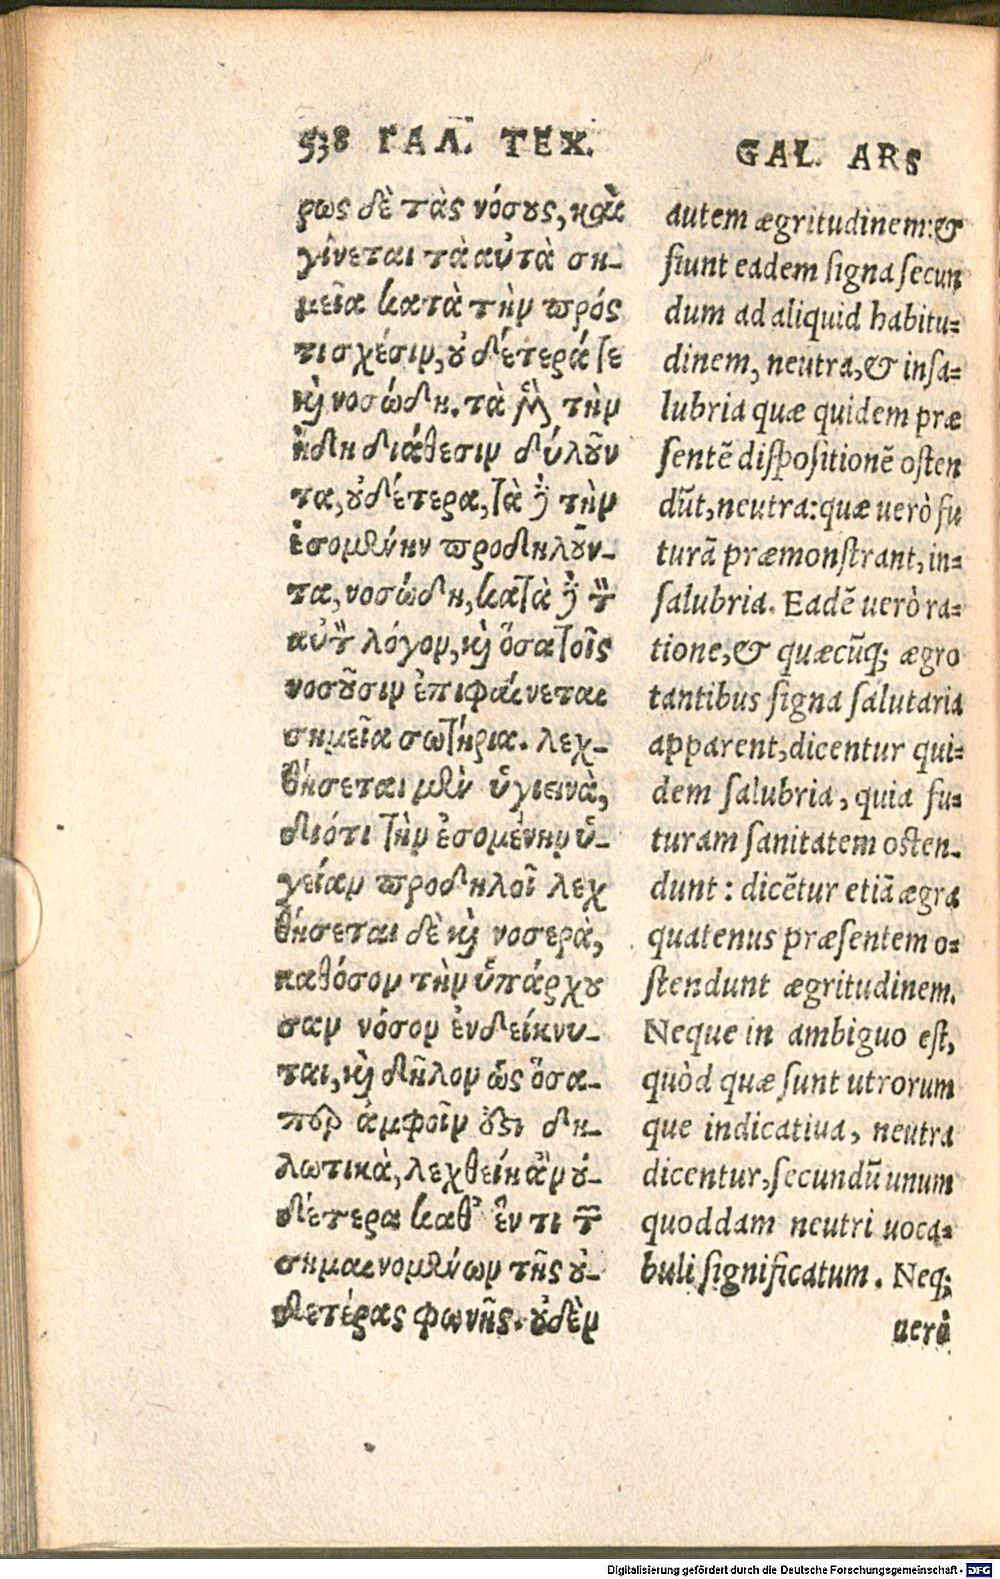 538 ΓΑΛ. ΤΕΧ.
ρως δὲ τὰς νόσους, καὶ
γίνεται τὰ αὐτὰ ση-
μεῖα κατὰ τὴν πρός
τι σχέσιν, οὐδέτερά τε
καὶ νοσώδη. τὰ μὲν τὴν
ἤδη διάθεσιν δηλοῦν
τα, οὐδέτερα, τὰ δὲ τὴν
ἐσομένην προδηλοῦν-
τα, νοσώδη, κατὰ δὲ τὸν
αὐτὸν λόγον, καὶ ὅσα τοῖς
νοσοῦσιν ἐπιφαίνεται
σημεῖα σωτήρια. λεχ-
θήσεται μὲν ὑγιεινὰ,
διότι τὴν ἐσομένην ὑ-
γείαν προδηλοῖ λεχ
θήσεται δὲ καὶ νοσερὰ,
καθόσον τὴν ὑπάρχου
σαν νόσον ἐνδείκνυ-
ται, καὶ δῆλον ὡς ὅσα-
περ ἀμφοῖν ἐστι δη-
λωτικὰ, λεχθείη ἂν οὐ-
δέτερα καθ' ἕν τι τῶν
σημαινομένων τῆς οὐ-
δετέρας φωνῆς. οὐδὲν
GAL. ARS
autem ægritudinem: &
fiunt eadem signa secun
dum ad aliquid habitu=
dinem, neutra, & insa=
lubria quæ quidem præ
sentē dispositionē osten
dūt, neutra: quæ uerò fu
turā præmonstrant, in=
salubria. Eadē uerò ra=
tione, & quæcūq; ægro
tantibus signa salutaria
apparent, dicentur qui=
dem salubria, quia fu=
turam sanitatem osten-
dunt: dicētur etiā ægra
quatenus præsentem o=
stendunt ægritudinem.
Neque in ambiguo est,
quòd quæ sunt utrorum
que indicatiua, neutra
dicentur, secundū unum
quoddam neutri uoca=
buli significatum. Neq;
uerò
Digitalisierung gefördert durch die Deutsche Forschungsgemeinschaft - DFG